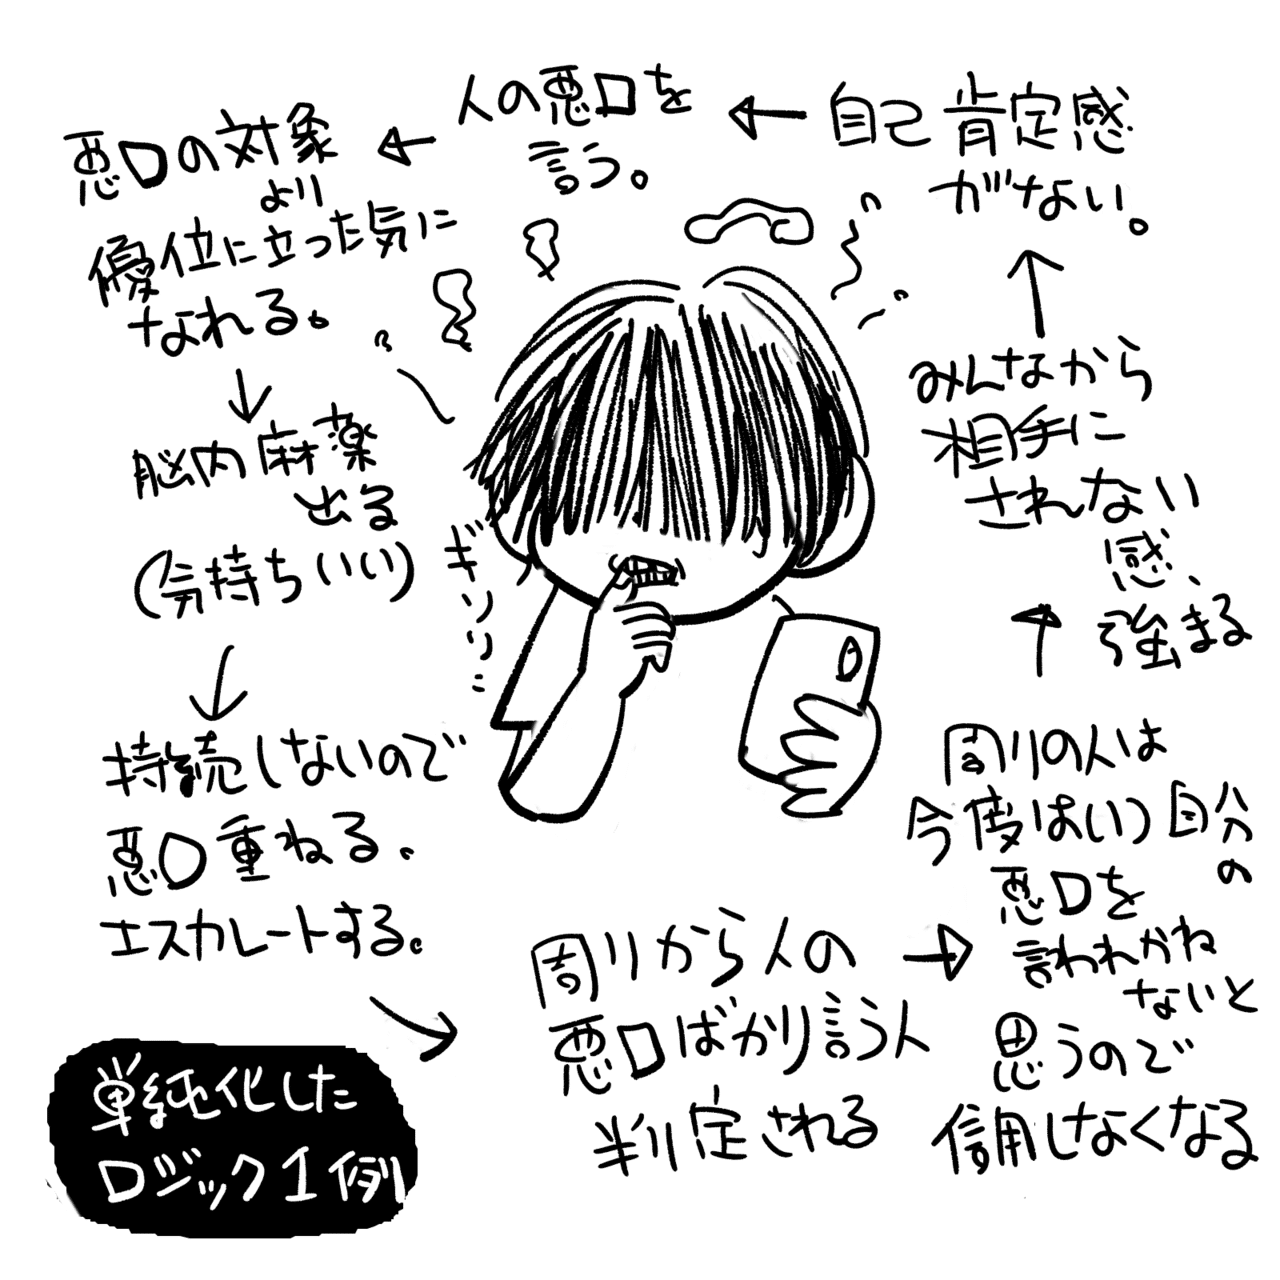 自己肯定感
がない。
人の悪口を
言う。
悪口の対象
より
優位に立った気に
なれる。
脳内麻薬
出る
(気持ちいい)
持続しないので
悪口重ねる。
エスカレートする。
周りから人の
悪口ばかり言う人
判定される
周りの人は
今度はいつ自分
の
悪口を
言われかね
ないと
思うので
信用しなくなる
みんなから
相手に
されない
感、
強まる
ギリリ…
単純化した
ロジック1例